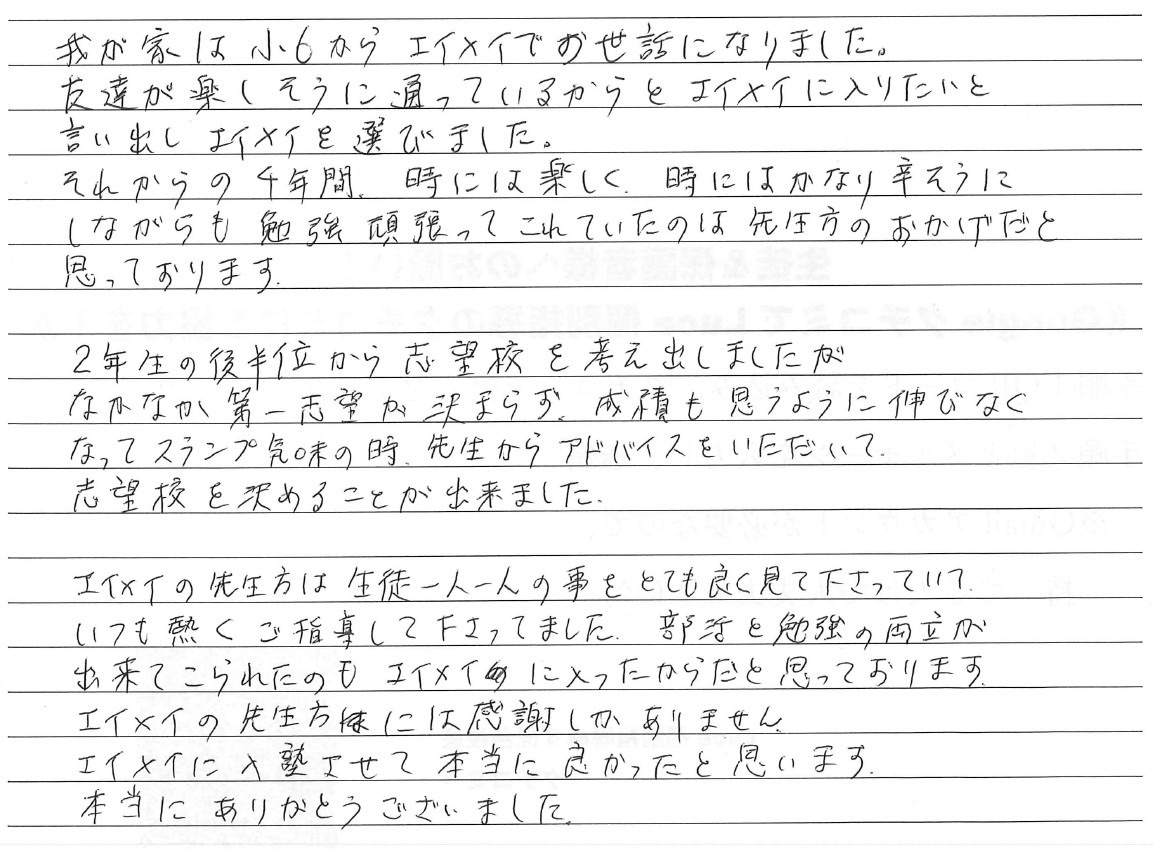 我が家は小6からエイメイでお世話になりました。
友達が楽しそうに通っているからとエイメイに入りたいと
言い出しエイメイを選びました。
それからの4年間、時には楽しく、時にはかなり辛そうに
しながらも勉強頑張ってこれていたのは先生方のおかげだと
思っております。
2年生の後半位から志望校を考え出しましたが
なかなか第一志望が決まらず、成績も思うように伸びなく
なってスランプ気味の時、先生からアドバイスをいただいて、
志望校を決めることが出来ました。
エイメイの先生方は生徒一人一人の事をとても良く見て下さっていて、
いつも熱くご指導して下さってました。部活と勉強の両立が
出来てこられたのもエイメイに入ったからだと思っております。
エイメイの先生方には感謝しかありません。
エイメイに入塾させて本当に良かったと思います。
本当にありがとうございました。